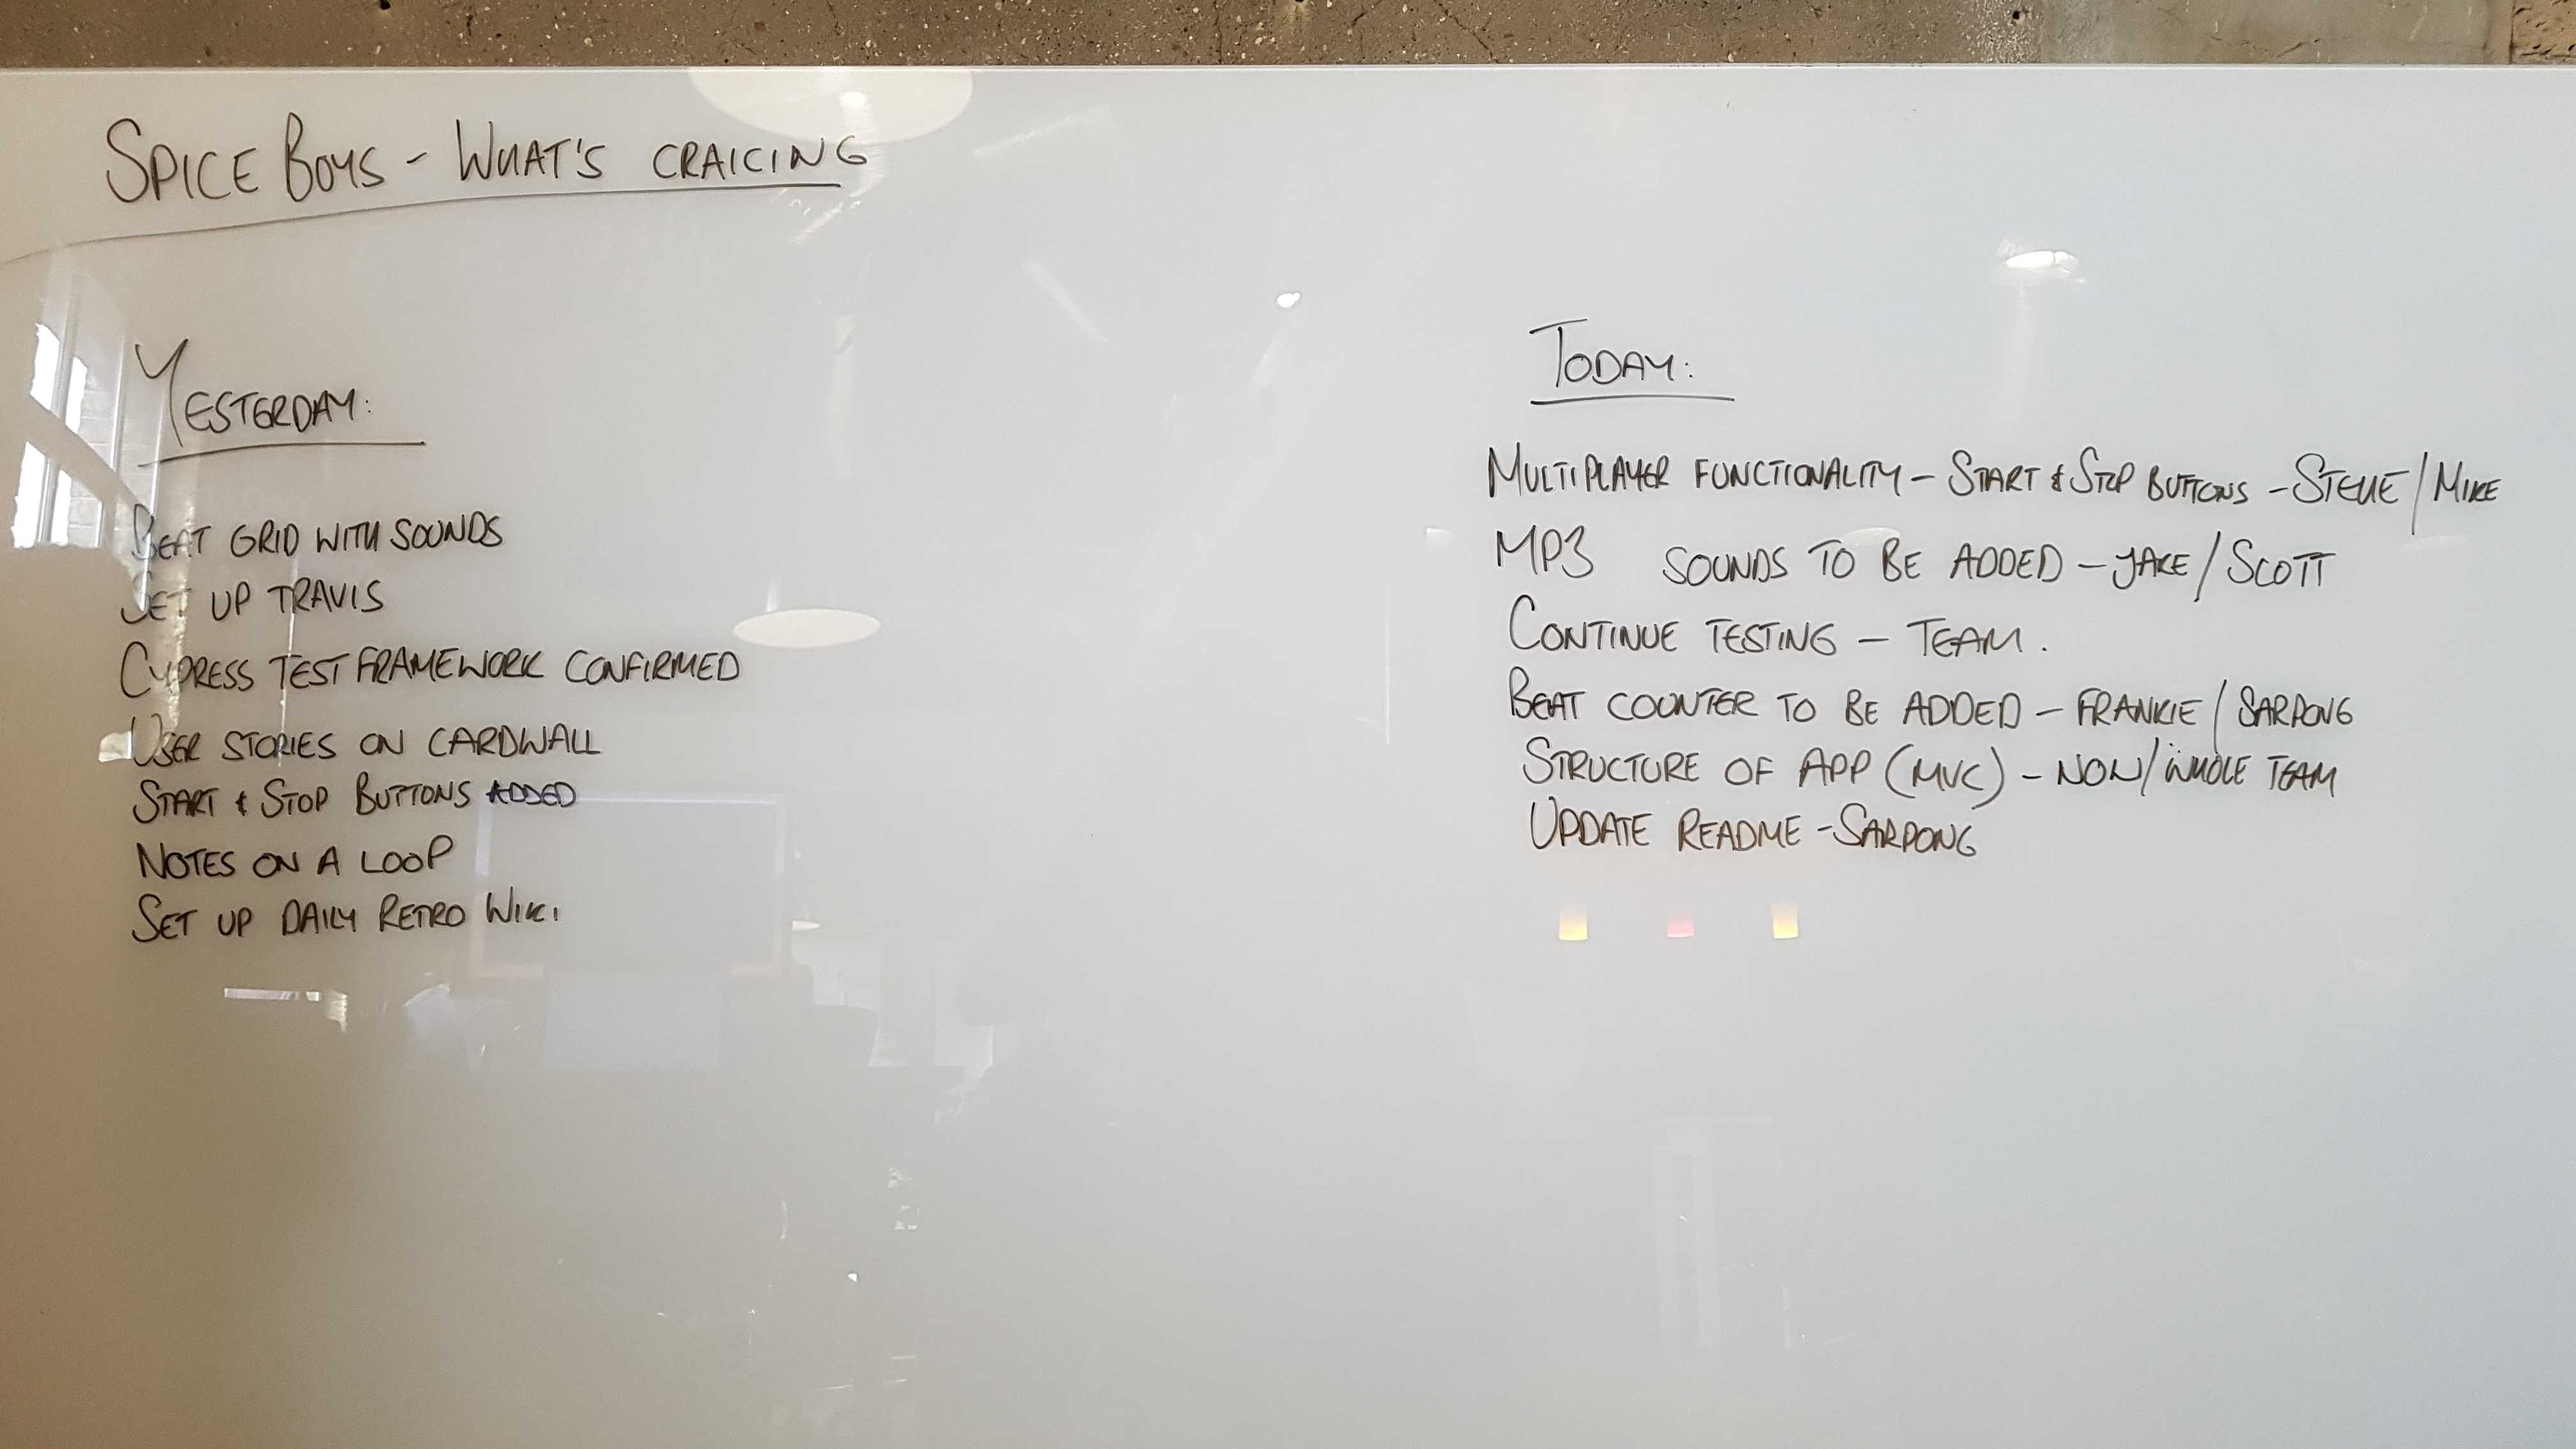 SPICE BOYS - WHAT'S CRAICING
YESTERDAY:
BEAT GRID WITH SOUNDS
SET UP TRAVIS
CYPRESS TEST FRAMEWORK CONFIRMED
USER STORIES ON CARDWALL
START & STOP BUTTONS ADDED
NOTES ON A LOOP
SET UP DAILY RETRO WIKI
TODAY:
MULTIPLAYER FUNCTIONALITY - START & STOP BUTTONS - STEVE / MIKE
MP3 SOUNDS TO BE ADDED - JAKE / SCOTT
CONTINUE TESTING - TEAM.
BEAT COUNTER TO BE ADDED - FRANKIE / SARPONG
STRUCTURE OF APP (MVC) - NOW / WHOLE TEAM
UPDATE README - SARPONG